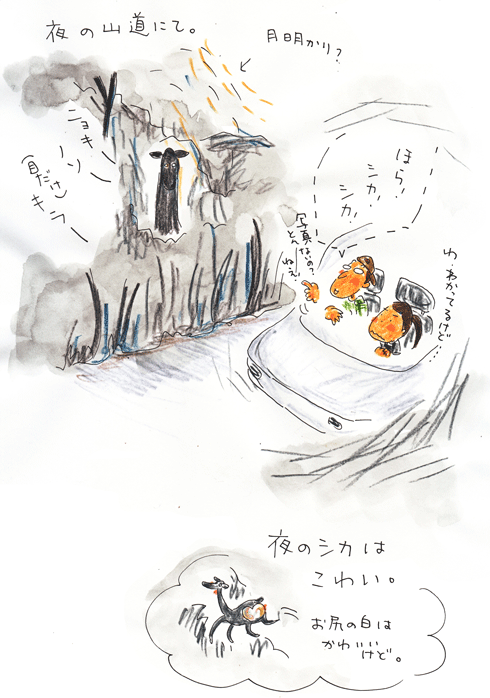 夜の山道にて。
月明かり?
ニョキ
ノソー
(目だけ)
キラー
ほら!
シカ!
シカ!
写真ないの?
とんー
ねぇ?
わ、わかってるけど…
夜のシカは
こわい。
お尻の白は
かわいい
けど。